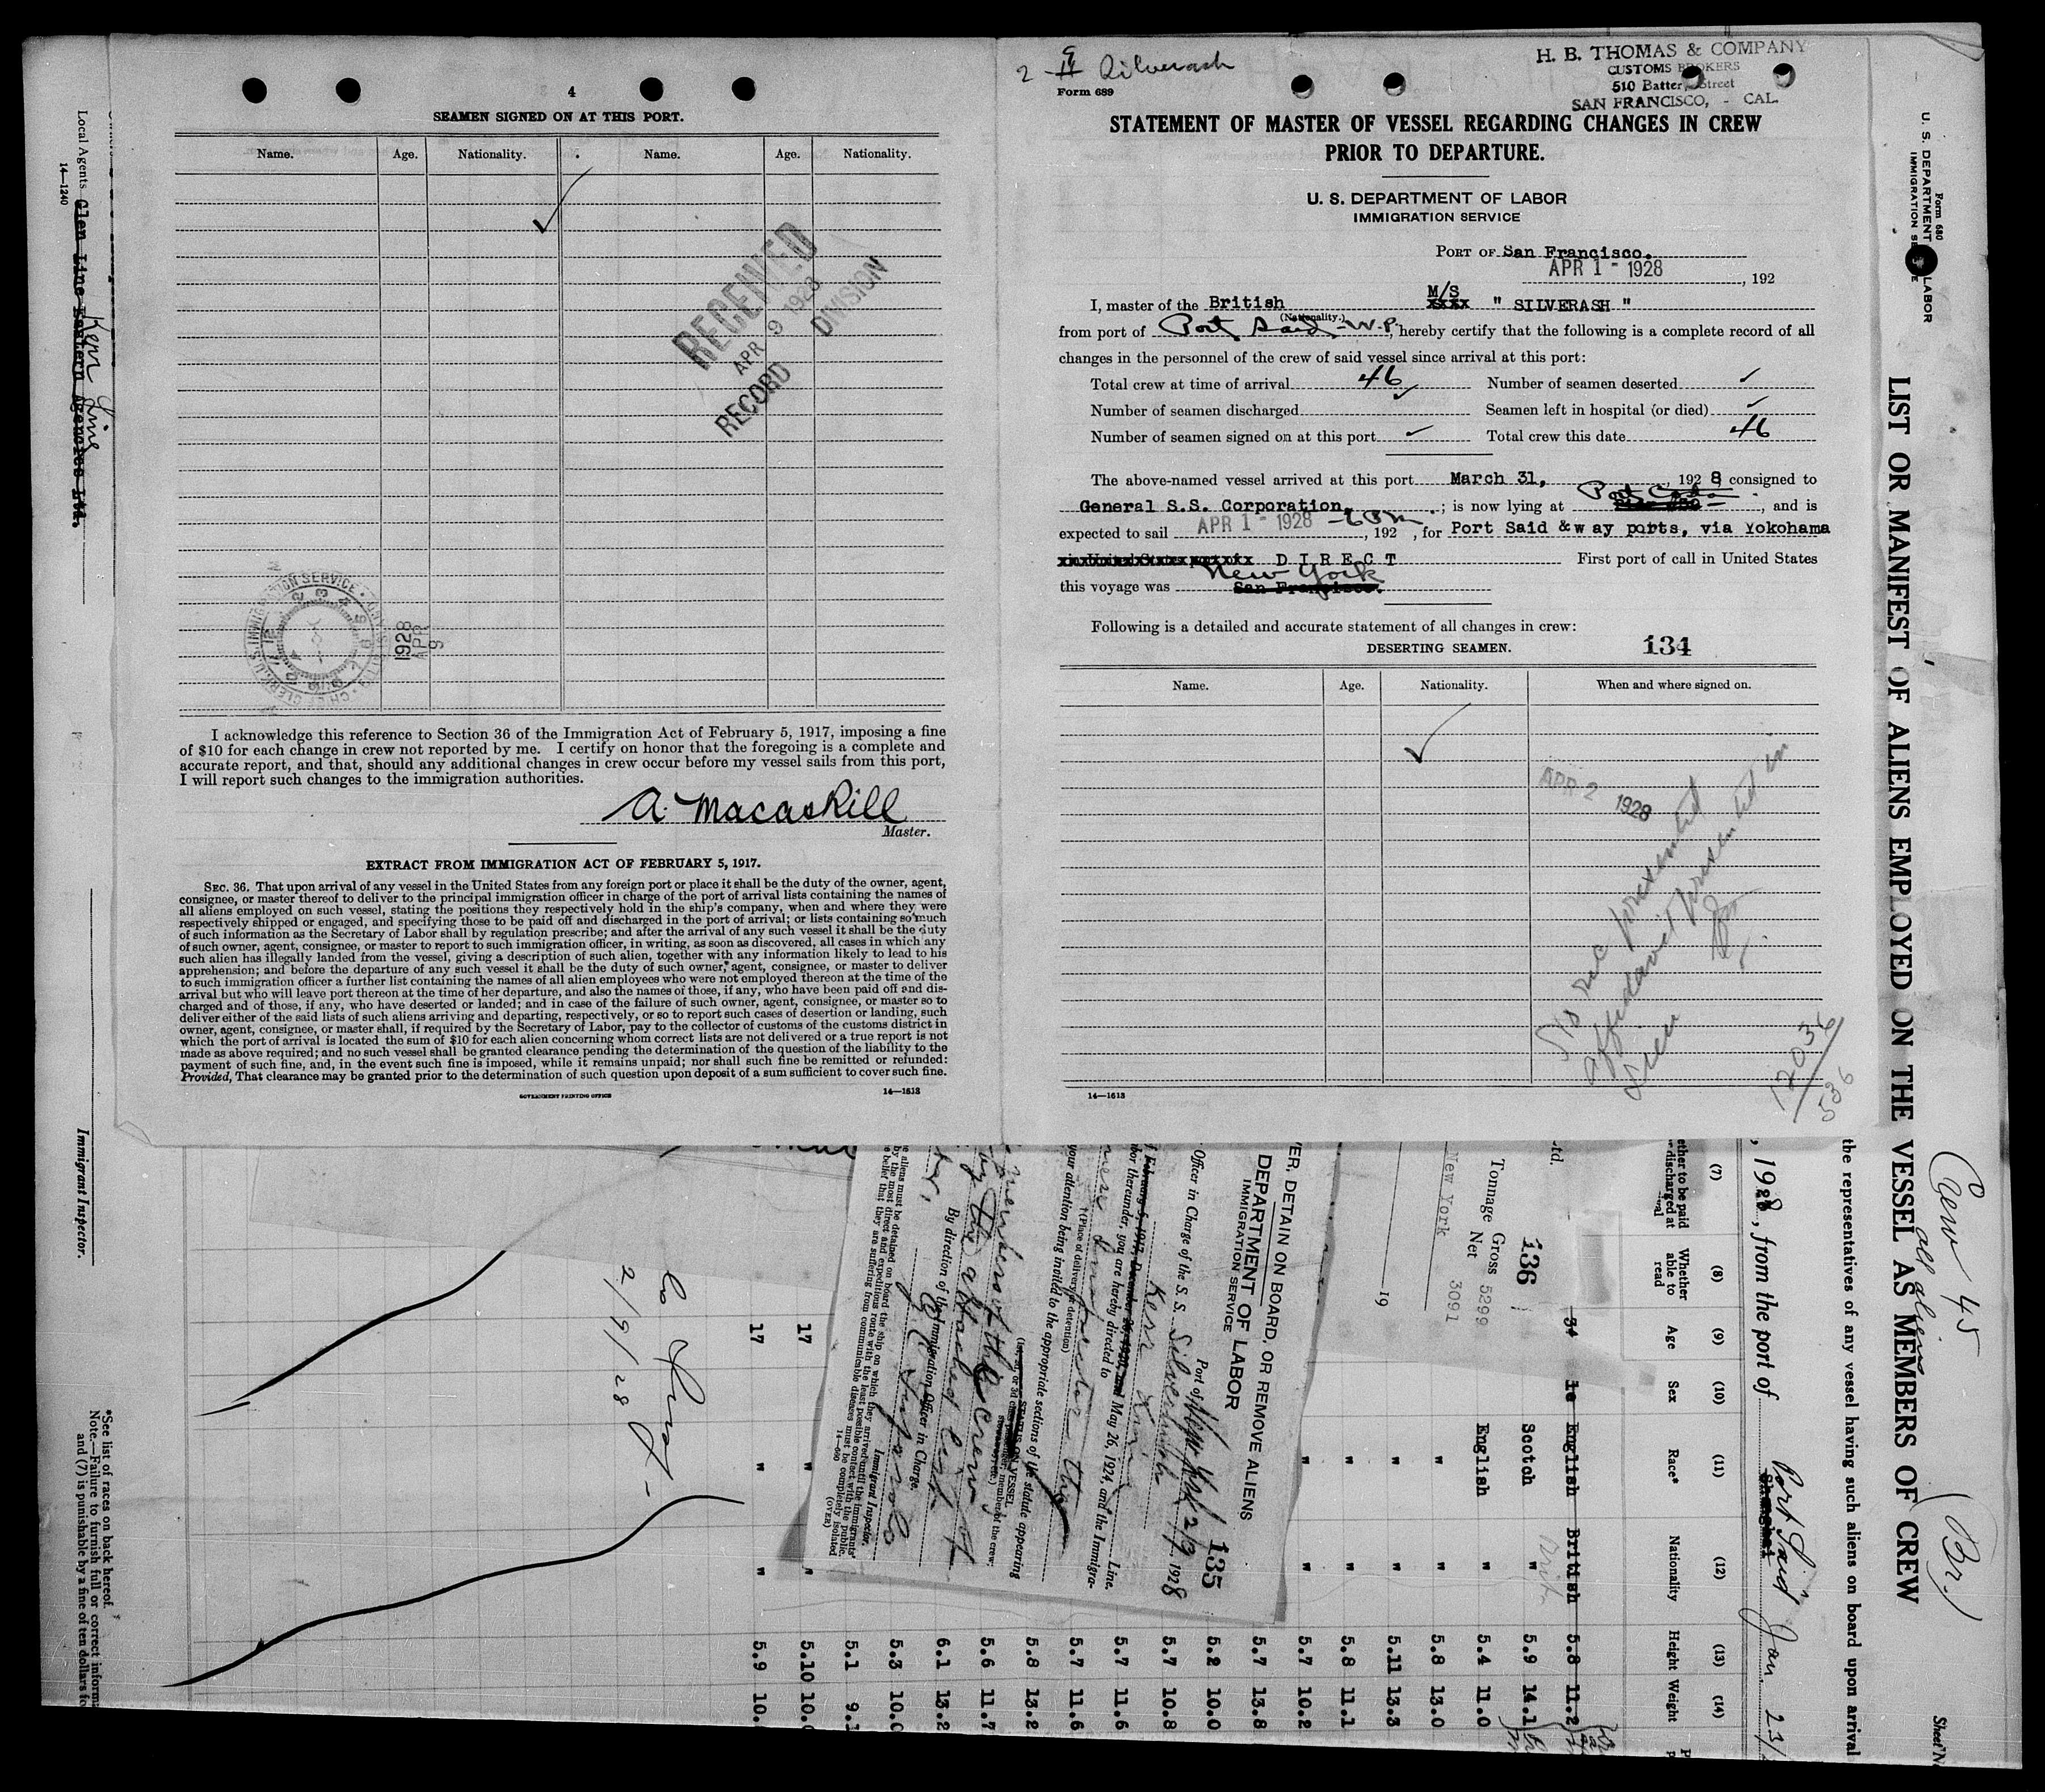 4
SEAMEN SIGNED ON AT THIS PORT.
Name. Age. Nationality. Name. Age. Nationality.
RECEIVED
APR 9 1928
RECORD DIVISION
1928
APR
9
I acknowledge this reference to Section 36 of the Immigration Act of February 5, 1917, imposing a fine
of $10 for each change in crew not reported by me. I certify on honor that the foregoing is a complete and
accurate report, and that, should any additional changes in crew occur before my vessel sails from this port,
I will report such changes to the immigration authorities.
A. Macaskill
Master.
EXTRACT FROM IMMIGRATION ACT OF FEBRUARY 5, 1917.
SEC. 36. That upon arrival of any vessel in the United States from any foreign port or place it shall be the duty of the owner, agent,
consignee, or master thereof to deliver to the principal immigration officer in charge of the port of arrival lists containing the names of
all aliens employed on such vessel, stating the positions they respectively hold in the ship's company, when and where they were
respectively shipped or engaged, and specifying those to be paid off and discharged in the port of arrival; or lists containing so much
of such information as the Secretary of Labor shall by regulation prescribe; and after the arrival of any such vessel it shall be the duty
of such owner, agent, consignee, or master to report to such immigration officer, in writing, as soon as discovered, all cases in which any
such alien has illegally landed from the vessel, giving a description of such alien, together with any information likely to lead to his
apprehension; and before the departure of any such vessel it shall be the duty of such owner, agent, consignee, or master to deliver
to such immigration officer a further list containing the names of all alien employees who were not employed thereon at the time of the
arrival but who will leave port thereon at the time of her departure, and also the names of those, if any, who have been paid off and dis-
charged and of those, if any, who have deserted or landed; and in case of the failure of such owner, agent, consignee, or master so to
deliver either of the said lists of such aliens arriving and departing, respectively, or so to report such cases of desertion or landing, such
owner, agent, consignee, or master shall, if required by the Secretary of Labor, pay to the collector of customs of the customs district in
which the port of arrival is located the sum of $10 for each alien concerning whom correct lists are not delivered or a true report is not
made as above required; and no such vessel shall be granted clearance pending the determination of the question of the liability to the
payment of such fine, and, in the event such fine is imposed, while it remains unpaid; nor shall such fine be remitted or refunded:
Provided, That clearance may be granted prior to the determination of such question upon deposit of a sum sufficient to cover such fine.
GOVERNMENT PRINTING OFFICE 14—1613
2 - 9 Silverash
Form 689
H. B. THOMAS & COMPANY
CUSTOMS BROKERS
510 Batter Street
SAN FRANCISCO, - CAL.
STATEMENT OF MASTER OF VESSEL REGARDING CHANGES IN CREW
PRIOR TO DEPARTURE.
U. S. DEPARTMENT OF LABOR
IMMIGRATION SERVICE
PORT OF San Francisco.
APR 1 - 1928, 192
I, master of the British M/S " SILVERASH "
(Nationality.)
from port of Port Said - W.P. hereby certify that the following is a complete record of all
changes in the personnel of the crew of said vessel since arrival at this port:
Total crew at time of arrival 46 Number of seamen deserted
Number of seamen discharged Seamen left in hospital (or died)
Number of seamen signed on at this port Total crew this date 46
The above-named vessel arrived at this port March 31, 192 8, consigned to
General S.S. Corporation, ; is now lying at Port Costa, and is
expected to sail APR 1 - 1928 - 6 Pm, 192 , for Port Said & way ports, via Yokohama
D I R E C T First port of call in United States
this voyage was New York San Francisco.
Following is a detailed and accurate statement of all changes in crew:
DESERTING SEAMEN. 134
Name. Age. Nationality. When and where signed on.
APR 2 1928
No rule presented
affidavit presented in
lieu
12036/536
14—1613
Form 680
U. S. DEPARTMENT LABOR
IMMIGRATION SE
LIST OR MANIFEST OF ALIENS EMPLOYED ON THE VESSEL AS MEMBERS OF CREW
Crew 45
all aliens
(Br.)
Sheet N
the representatives of any vessel having such aliens on board upon arrival
, 1928, from the port of Port Said Jan. 23/
(7) (8) (9) (10) (11) (12) (13) (14)
Whether able to read
Age Sex Race* Nationality Height Weight
34 English British 5.8 11.2
Scotch " 5.9 14.1
English " 5.4 11.0
" " 5.8 13.0
" " 5.11 13.3
" " 5.8 11.1
" " 5.7 10.2
5.7 13.8
5.2 10.0
5.7 10.8
5.7 11.6
5.7 11.6
5.8 13.2
5.6 11.7
6.1 13.2
5.3 10.0
5.1 9.1
17 " " 5.10 10.
17 " " 5.9 10.
136
Tonnage Gross 5299
Net 3091
New York
19
Ltd.
VER, DETAIN ON BOARD, OR REMOVE ALIENS
DEPARTMENT OF LABOR
IMMIGRATION SERVICE
135
Port of New York 2/9, 1928
Officer in Charge of the S. S. Silverash
Kerr Line Line.
May 26, 1924, and the Immigra-
bor thereunder, you are hereby directed to
†(Place of delivery or detention)
your attention being invited to the appropriate sections of the statute appearing
members of the crew
by the attached list
By direction of the Immigration Officer in Charge.
Immigrant Inspector.
e aliens must be detained on board the ship on which they arrived until the immigrants'
by the most direct and expeditious route with the least possible contact with the public.
belief that they are suffering from communicable diseases must be completely isolated
14—660 (OVER)
2/9/28
Local Agents Glen Line Eastern Agencies Ltd.
Kerr Line
14—1240
Immigrant Inspector.
*See list of races on back hereof.
Note.—Failure to furnish full or correct inform
and (7) is punishable by a fine of ten dollars fo